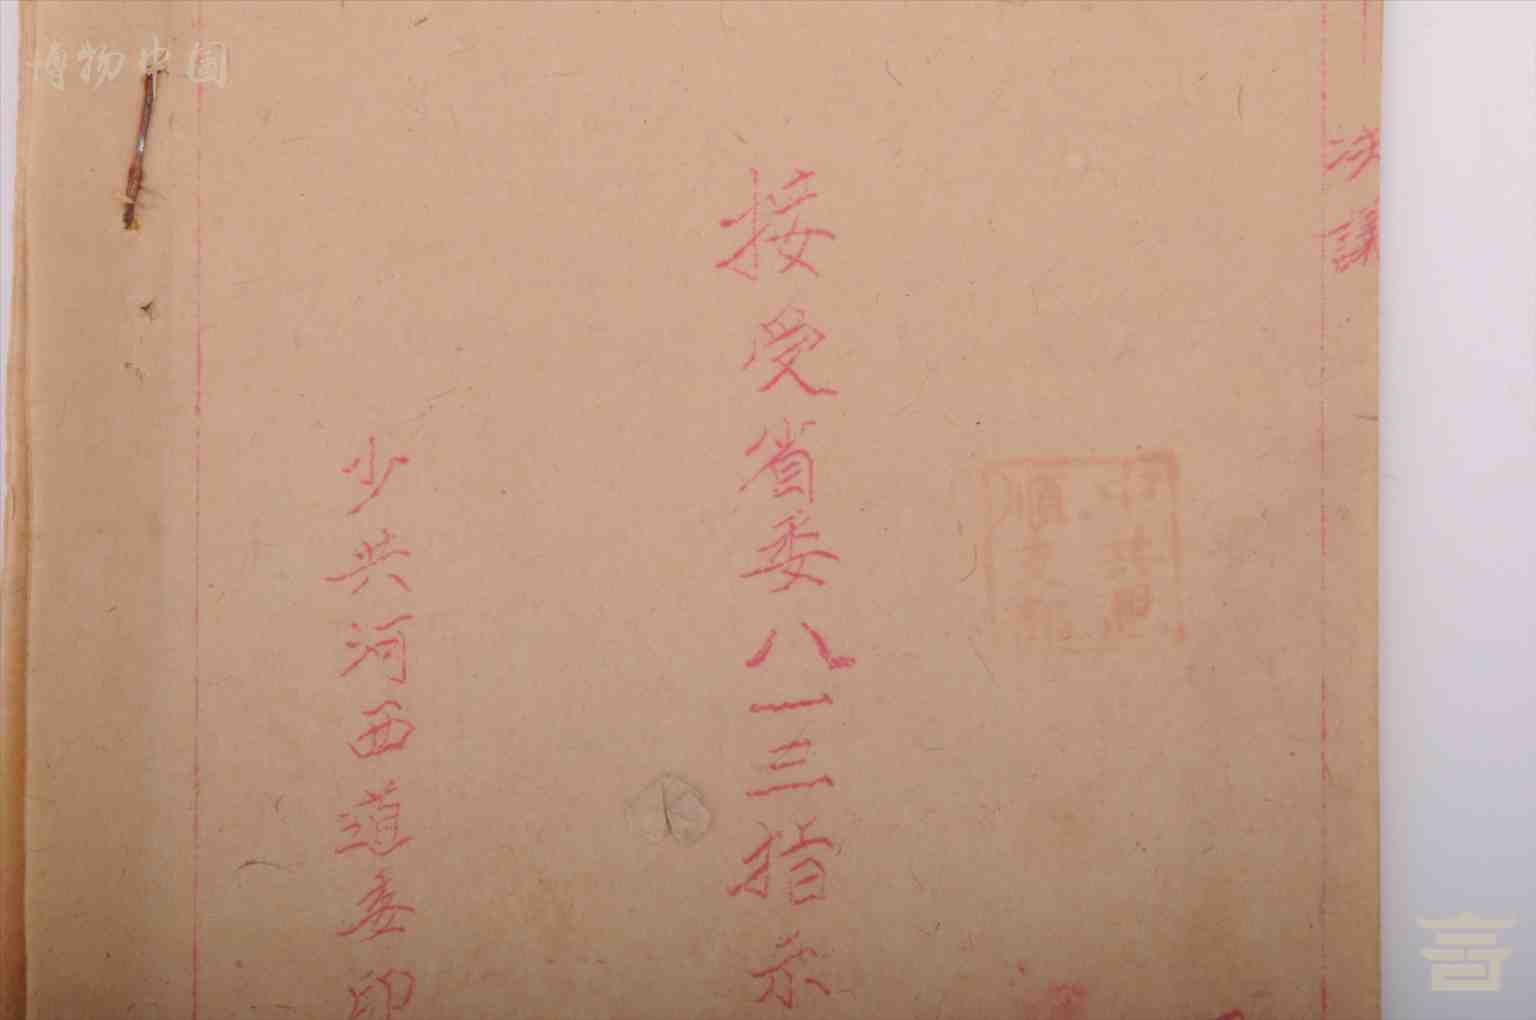 决议
接受省委八一三指示
少共河西道委印
博物中国